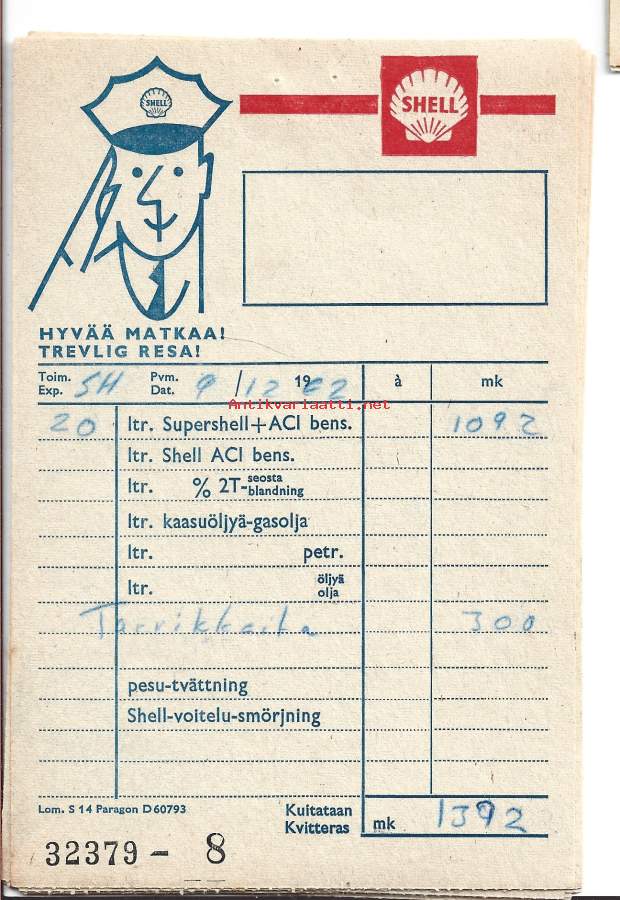 SHELL
SHELL
HYVÄÄ MATKAA!
TREVLIG RESA!
Toim. Exp. SH Pvm. Dat. 9/12 1962 à mk
Antikvariaatti.net
20 ltr. Supershell+ACI bens. 1092
ltr. Shell ACI bens.
ltr. % 2T-seosta blandning
ltr. kaasuöljyä-gasolja
ltr. petr.
ltr. öljyä olja
Tarvikkeita 300
pesu-tvättning
Shell-voitelu-smörjning
Lom. S 14 Paragon D 60793 Kuitataan Kvitteras mk 1392
32379 - 8